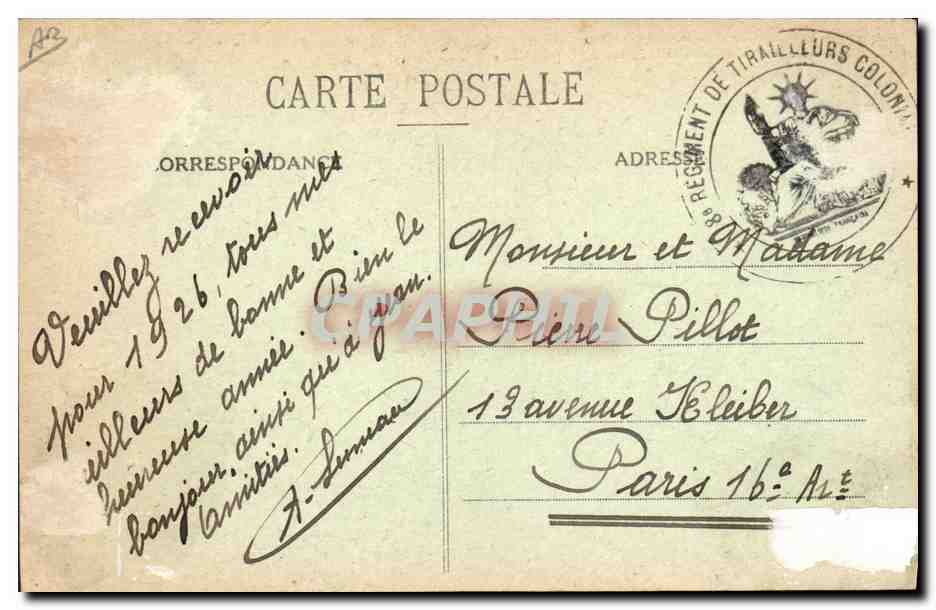 CARTE POSTALE
ORRESPONDANCE
Veuillez recevoir
pour 1926, tous mes
eilleurs de bonne et
heureuse année. Bien le
bonjour, ainsi que à
Amitiés.
ADRESSE
8e REGIMENT DE TIRAILLEURS COLONIA
Monsieur et Madame
Pierre Pillot
13 avenue Kleiber
Paris 16e Art
CPAPHIL